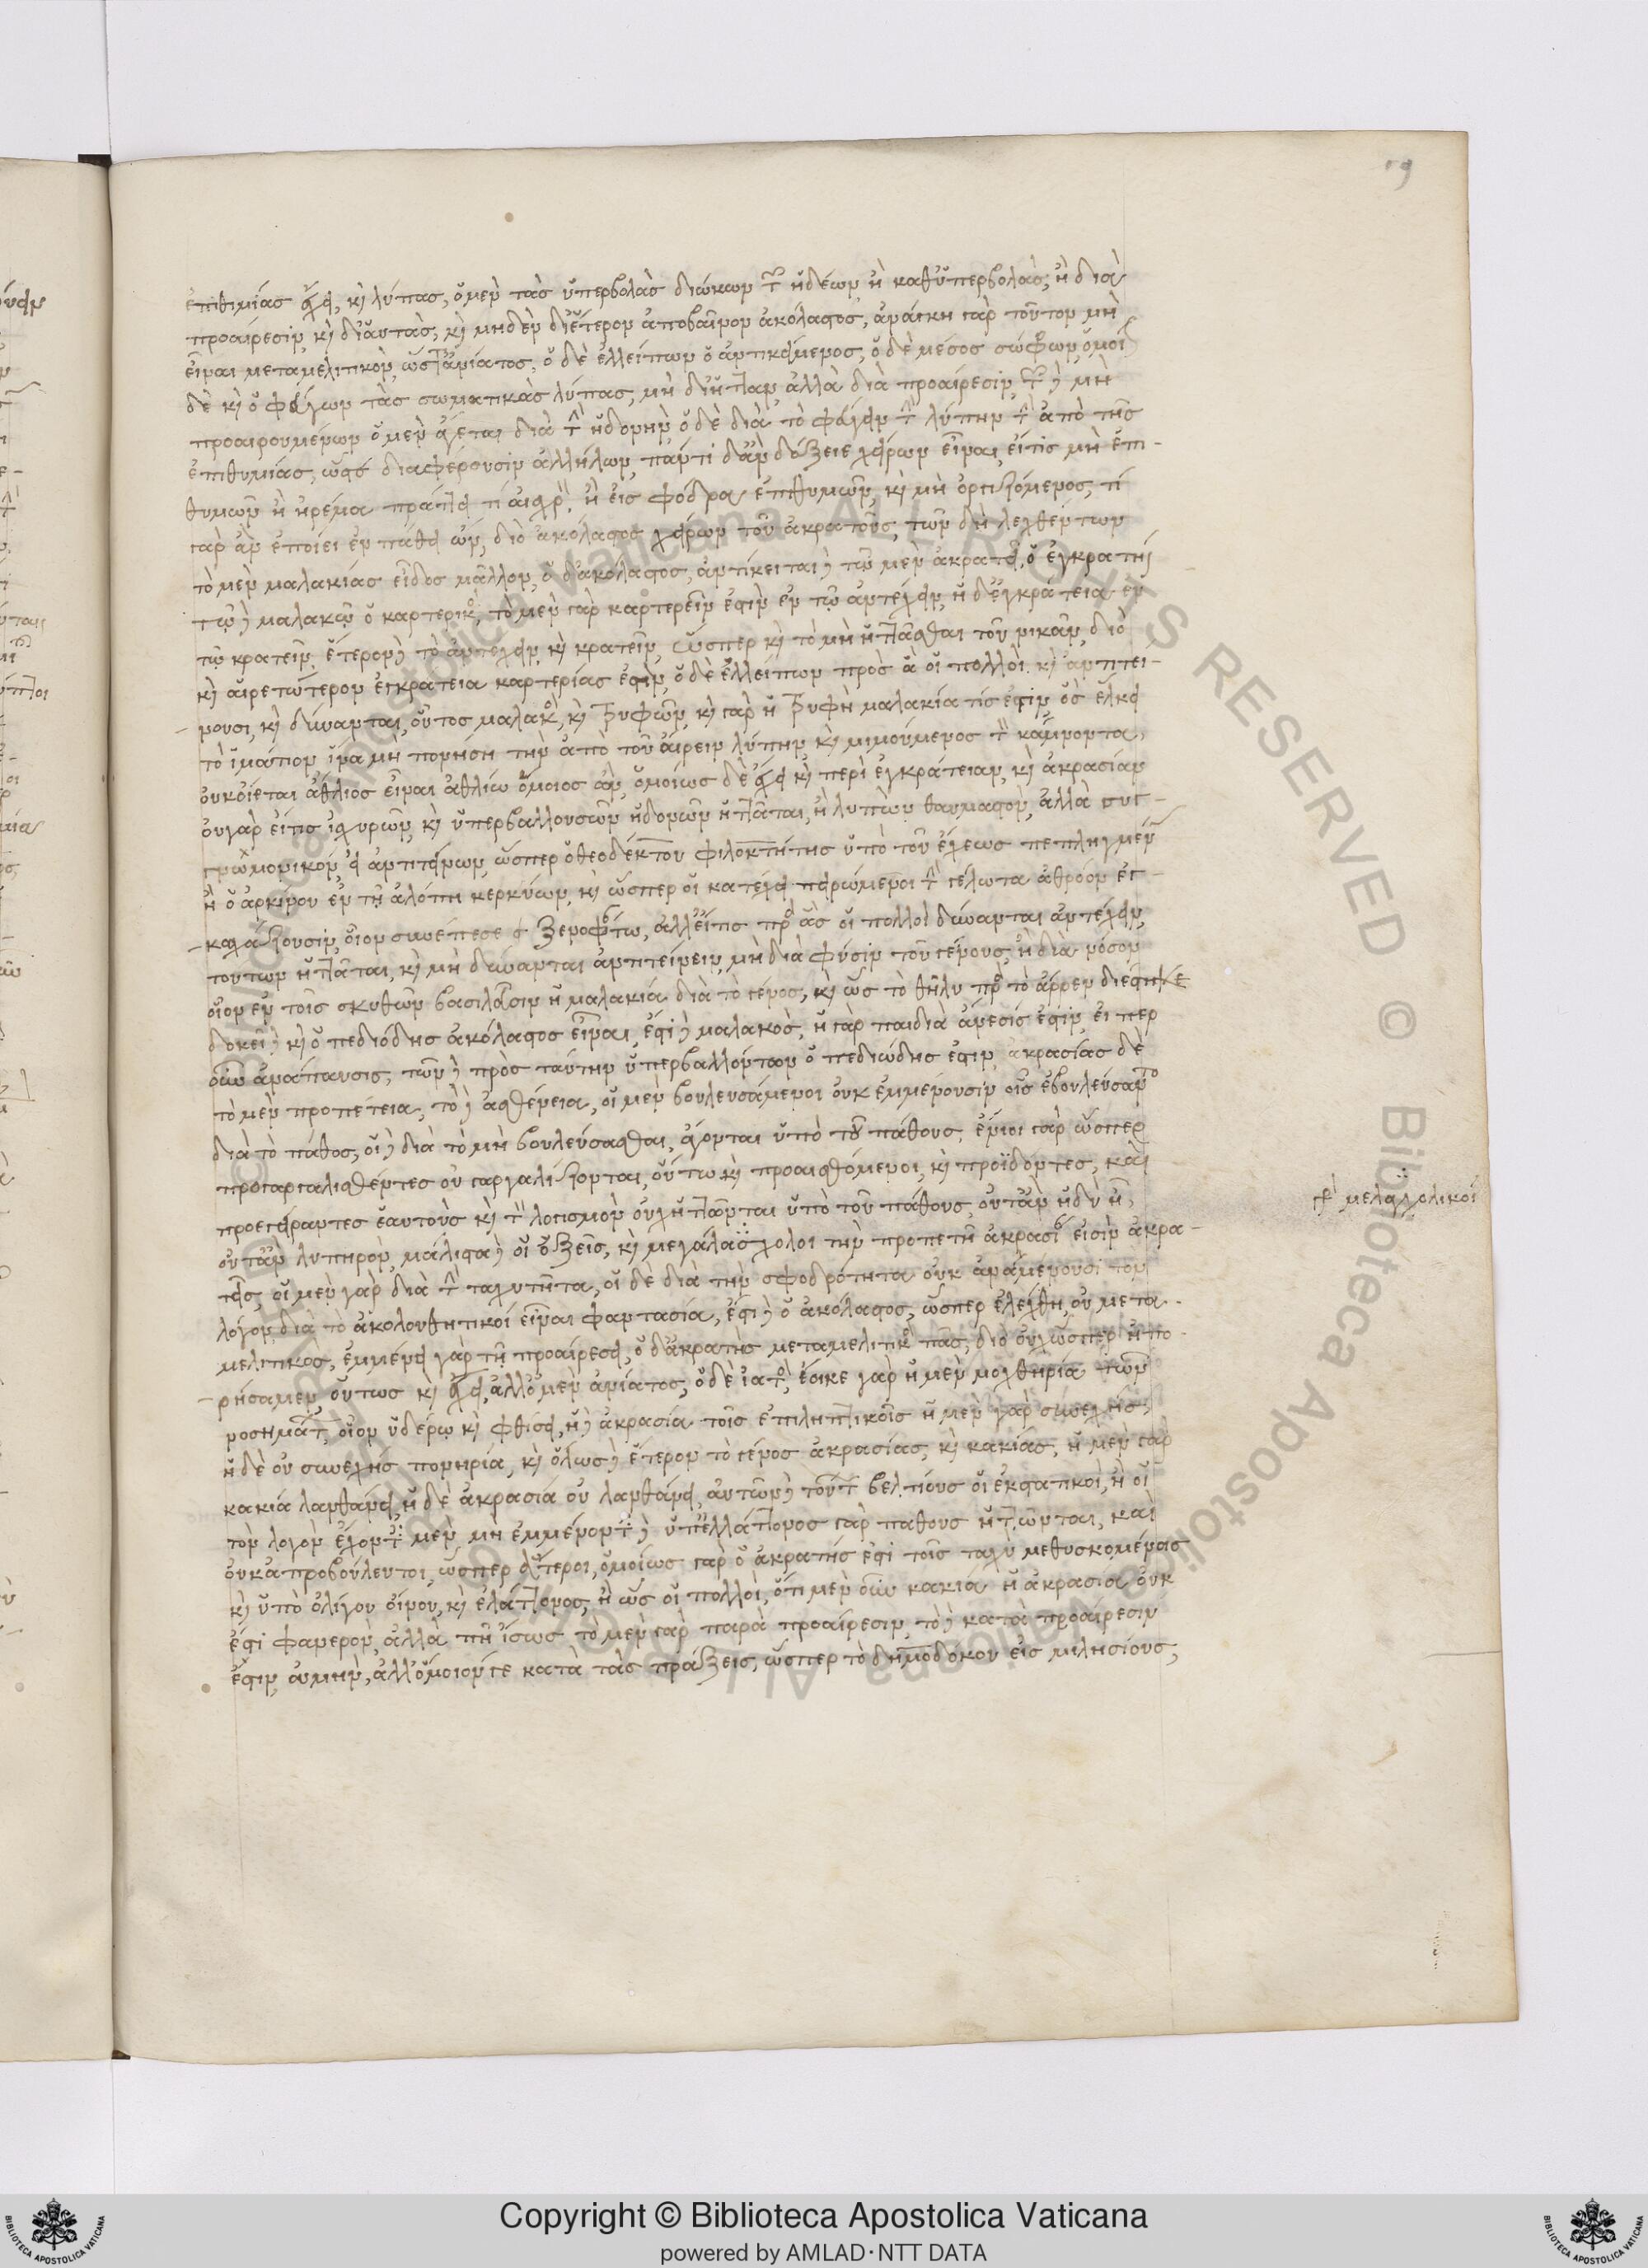 ἐπιθυμίας ἔχει, κὶ λύπας, ὁ μὲν τὰς ὑπερβολὰς διώκων τῶν ἡδέων ἢ καθ' ὑπερβολὰς, ἢ διὰ
προαίρεσιν, κὶ δι' αὐτὰς, κὶ μηδὲν δι' ἕτερον ἀποβαῖνον ἀκόλαστος, ἀνάγκη γὰρ τοῦτον μὴ
εἶναι μεταμελητικὸν, ὥστ' ἀνίατος, ὁ δὲ ἐλλείπων ὁ ἀντικείμενος, ὁ δὲ μέσος σώφρων, ὁμοί
δὲ κὶ ὁ φεύγων τὰς σωματικὰς λύπας, μὴ δι' ἧτταν ἀλλὰ διὰ προαίρεσιν, τῶν δὲ μὴ
προαιρουμένων ὁ μὲν ἄγεται διὰ τὴν ἡδονὴν ὁ δὲ διὰ τὸ φεύγειν τὴν λύπην τὴν ἀπὸ τῆς
ἐπιθυμίας, ὥστε διαφέρουσιν ἀλλήλων, παντὶ δ' ἂν δόξειε χείρων εἶναι, εἴτις μὴ ἐπι-
θυμῶν ἢ ἠρέμα πράττει τι αἰσχρὸν, ἢ εἰ σφόδρα ἐπιθυμῶν, κὶ μὴ ὀργιζόμενος, τί
γὰρ ἂν ἐποίει ἐν πάθει ὤν, διὸ ἀκόλαστος χείρων τοῦ ἀκρατοῦς, τῶν δὴ λεχθέντων
τὸ μὲν μαλακίας εἶδος μᾶλλον, ὁ δ' ἀκόλαστος, ἀντίκειται δὲ τῷ μὲν ἀκρατεῖ, ὁ ἐγκρατής
τῷ δὲ μαλακῷ ὁ καρτερικὸς, τὸ μὲν γὰρ καρτερεῖν ἐστὶν ἐν τῷ ἀντέχειν, ἡ δ' ἐγκράτεια ἐν
τῷ κρατεῖν, ἕτερον δὲ τὸ ἀντέχειν κὶ κρατεῖν, ὥσπερ κὶ τὸ μὴ ἡττᾶσθαι τοῦ νικᾶν, διὸ
κὶ αἱρετώτερον ἐγκράτεια καρτερίας ἐστὶν, ὁ δὲ ἐλλείπων πρὸς ἃ οἱ πολλοὶ κὶ ἀντιτεί-
νουσι, κὶ δύνανται, οὗτος μαλακὸς, κὶ τρυφῶν, κὶ γὰρ ἡ τρυφὴ μαλακία τίς ἐστιν, ὃς ἕλκει
τὸ ἱμάτιον ἵνα μὴ πονήσῃ τὴν ἀπὸ τοῦ αἴρειν λύπην κὶ μιμούμενος τὸν κάμνοντα,
οὐκ οἴεται ἄθλιος εἶναι ἀθλίῳ ὅμοιος ὤν, ὁμοίως δὲ ἔχει κὶ περὶ ἐγκράτειαν, κὶ ἀκρασίαν
οὐ γὰρ εἴτις ἰσχυρῶν, κὶ ὑπερβαλλουσῶν ἡδονῶν ἡττᾶται, ἢ λυπῶν θαυμαστὸν, ἀλλὰ συγ-
γνωμονικὸν, εἰ ἀντιτείνων, ὥσπερ ὁ θεοδέκτου φιλοκτήτης ὑπὸ τοῦ ἔχεως πεπληγμέν
ἢ ὁ καρκίνου ἐν τῇ ἀλόπῃ κερκύων, κὶ ὥσπερ οἱ κατέχειν πειρώμενοι τὸν γέλωτα ἀθρόον ἐκ-
καγχάζουσιν, οἷον συνέπεσε ξενοφάντῳ, ἀλλ' εἴτις πρὸς ἃς οἱ πολλοὶ δύνανται ἀντέχειν,
τούτων ἡττᾶται, κὶ μὴ δύνανται ἀντιτείνειν, μὴ διὰ φύσιν τοῦ γένους, ἢ διὰ νόσον
οἷον ἐν τοῖς σκυθῶν βασιλεῦσιν ἡ μαλακία διὰ τὸ γένος, κὶ ὡς τὸ θῆλυ πρὸς τὸ ἄρρεν διέστηκε
δοκεῖ δὲ κὶ ὁ πεδιώδης ἀκόλαστος εἶναι, ἔστι δὲ μαλακὸς, ἡ γὰρ παιδιὰ ἄνεσίς ἐστιν, εἴπερ
οὖν ἀνάπαυσις, τῶν δὲ πρὸς ταύτην ὑπερβαλλόντων ὁ πεδιώδης ἐστιν, ἀκρασίας δὲ
τὸ μὲν προπέτεια, τὸ δὲ ἀσθένεια, οἱ μὲν βουλευσάμενοι οὐκ ἐμμένουσιν οἷς ἐβουλεύσαντο
διὰ τὸ πάθος, οἱ δὲ διὰ τὸ μὴ βουλεύσασθαι, ἄγονται ὑπὸ τοῦ πάθους, ἔνιοι γὰρ ὥσπερ
προγαργαλισθέντες οὐ γαργαλίζονται, οὕτω κὶ προαισθόμενοι, κὶ προϊδόντες, καὶ
προεγείραντες ἑαυτοὺς κὶ τὸν λογισμὸν οὐχ ἡττῶνται ὑπὸ τοῦ πάθους, οὔτ' ἂν ἡδὺ ᾖ,
οὔτ' ἂν λυπηρὸν, μάλιστα δὲ οἱ ὀξεῖς, κὶ μεγάλας χολοι τὴν προπετῆ ἀκρασίαν εἰσὶν ἀκρα-
τεῖς, οἱ μὲν γὰρ διὰ τὴν ταχυτῆτα, οἱ δὲ διὰ τὴν σφοδρότητα οὐκ ἀναμένουσι τὸν
λόγον, διὰ τὸ ἀκολουθητικοί εἶναι φαντασία, ἔστι δὲ ὁ ἀκόλαστος, ὥσπερ ἐλέχθη, οὐ μετα-
μελητικὸς, ἐμμένει γὰρ τῇ προαιρέσει, ὁ δ' ἀκρατὴς μεταμελητικὸς πᾶς, διὸ οὐχ ὥσπερ ἠπο-
ρήσαμεν, οὕτως κὶ ἔχει, ἀλλ' ὁ μὲν ἀνίατος, ὁ δὲ ἰατὸς, ἔοικε γὰρ ἡ μὲν μοχθηρία τῶν
νοσημάτων, οἷον ὑδέρῳ κὶ φθίσει, ἡ δὲ ἀκρασία τοῖς ἐπιληπτικοῖς ἡ μὲν γὰρ συνεχὴς,
ἡ δὲ οὐ συνεχὴς πονηρία, κὶ ὅλως δὲ ἕτερον τὸ γένος ἀκρασίας, κὶ κακίας, ἡ μὲν γὰρ
κακία λανθάνει, ἡ δὲ ἀκρασία οὐ λανθάνει, αὐτῶν δὲ τούτων βελτίους οἱ ἐκστατικοὶ, ἢ οἱ
τὸν λόγον ἔχοντες μὲν μὴ ἐμμένοντες δὲ ὑπ' ἐλλάττονος γὰρ πάθους ἡττῶνται, καὶ
οὐκ ἀπροβούλευτοι, ὥσπερ ἅτεροι, ὁμοίως γὰρ ὁ ἀκρατής ἐστι τοῖς ταχὺ μεθυσκομένοις
κὶ ὑπὸ ὀλίγου οἴνου, κὶ ἐλάττονος, ἢ ὡς οἱ πολλοὶ, ὅτι μὲν οὖν κακία ἡ ἀκρασία οὐκ
ἔστι φανερὸν, ἀλλὰ πῇ ἴσως τὸ μὲν γὰρ παρὰ προαίρεσιν, τὸ δὲ κατὰ προαίρεσιν
ἔστιν, οὐ μὴν, ἀλλ' ὅμοιόν γε κατὰ τὰς πράξεις, ὥσπερ τὸ δημοδόκου εἰς μιλησίους,
μελαγχολικοί